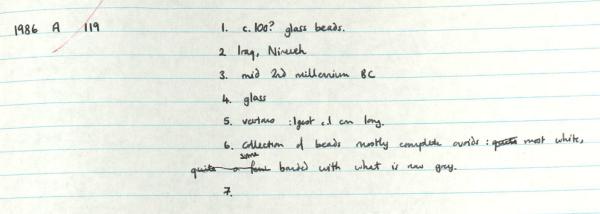 1986 A 119 1. c.100? glass beads.
2 Iraq, Nineveh
3. mid 2nd millennium BC
4. glass
5. various : lgest c.1 cm long.
6. Collection of beads mostly complete ovoids : quite most white,
quite a few some banded with what is now grey.
7.